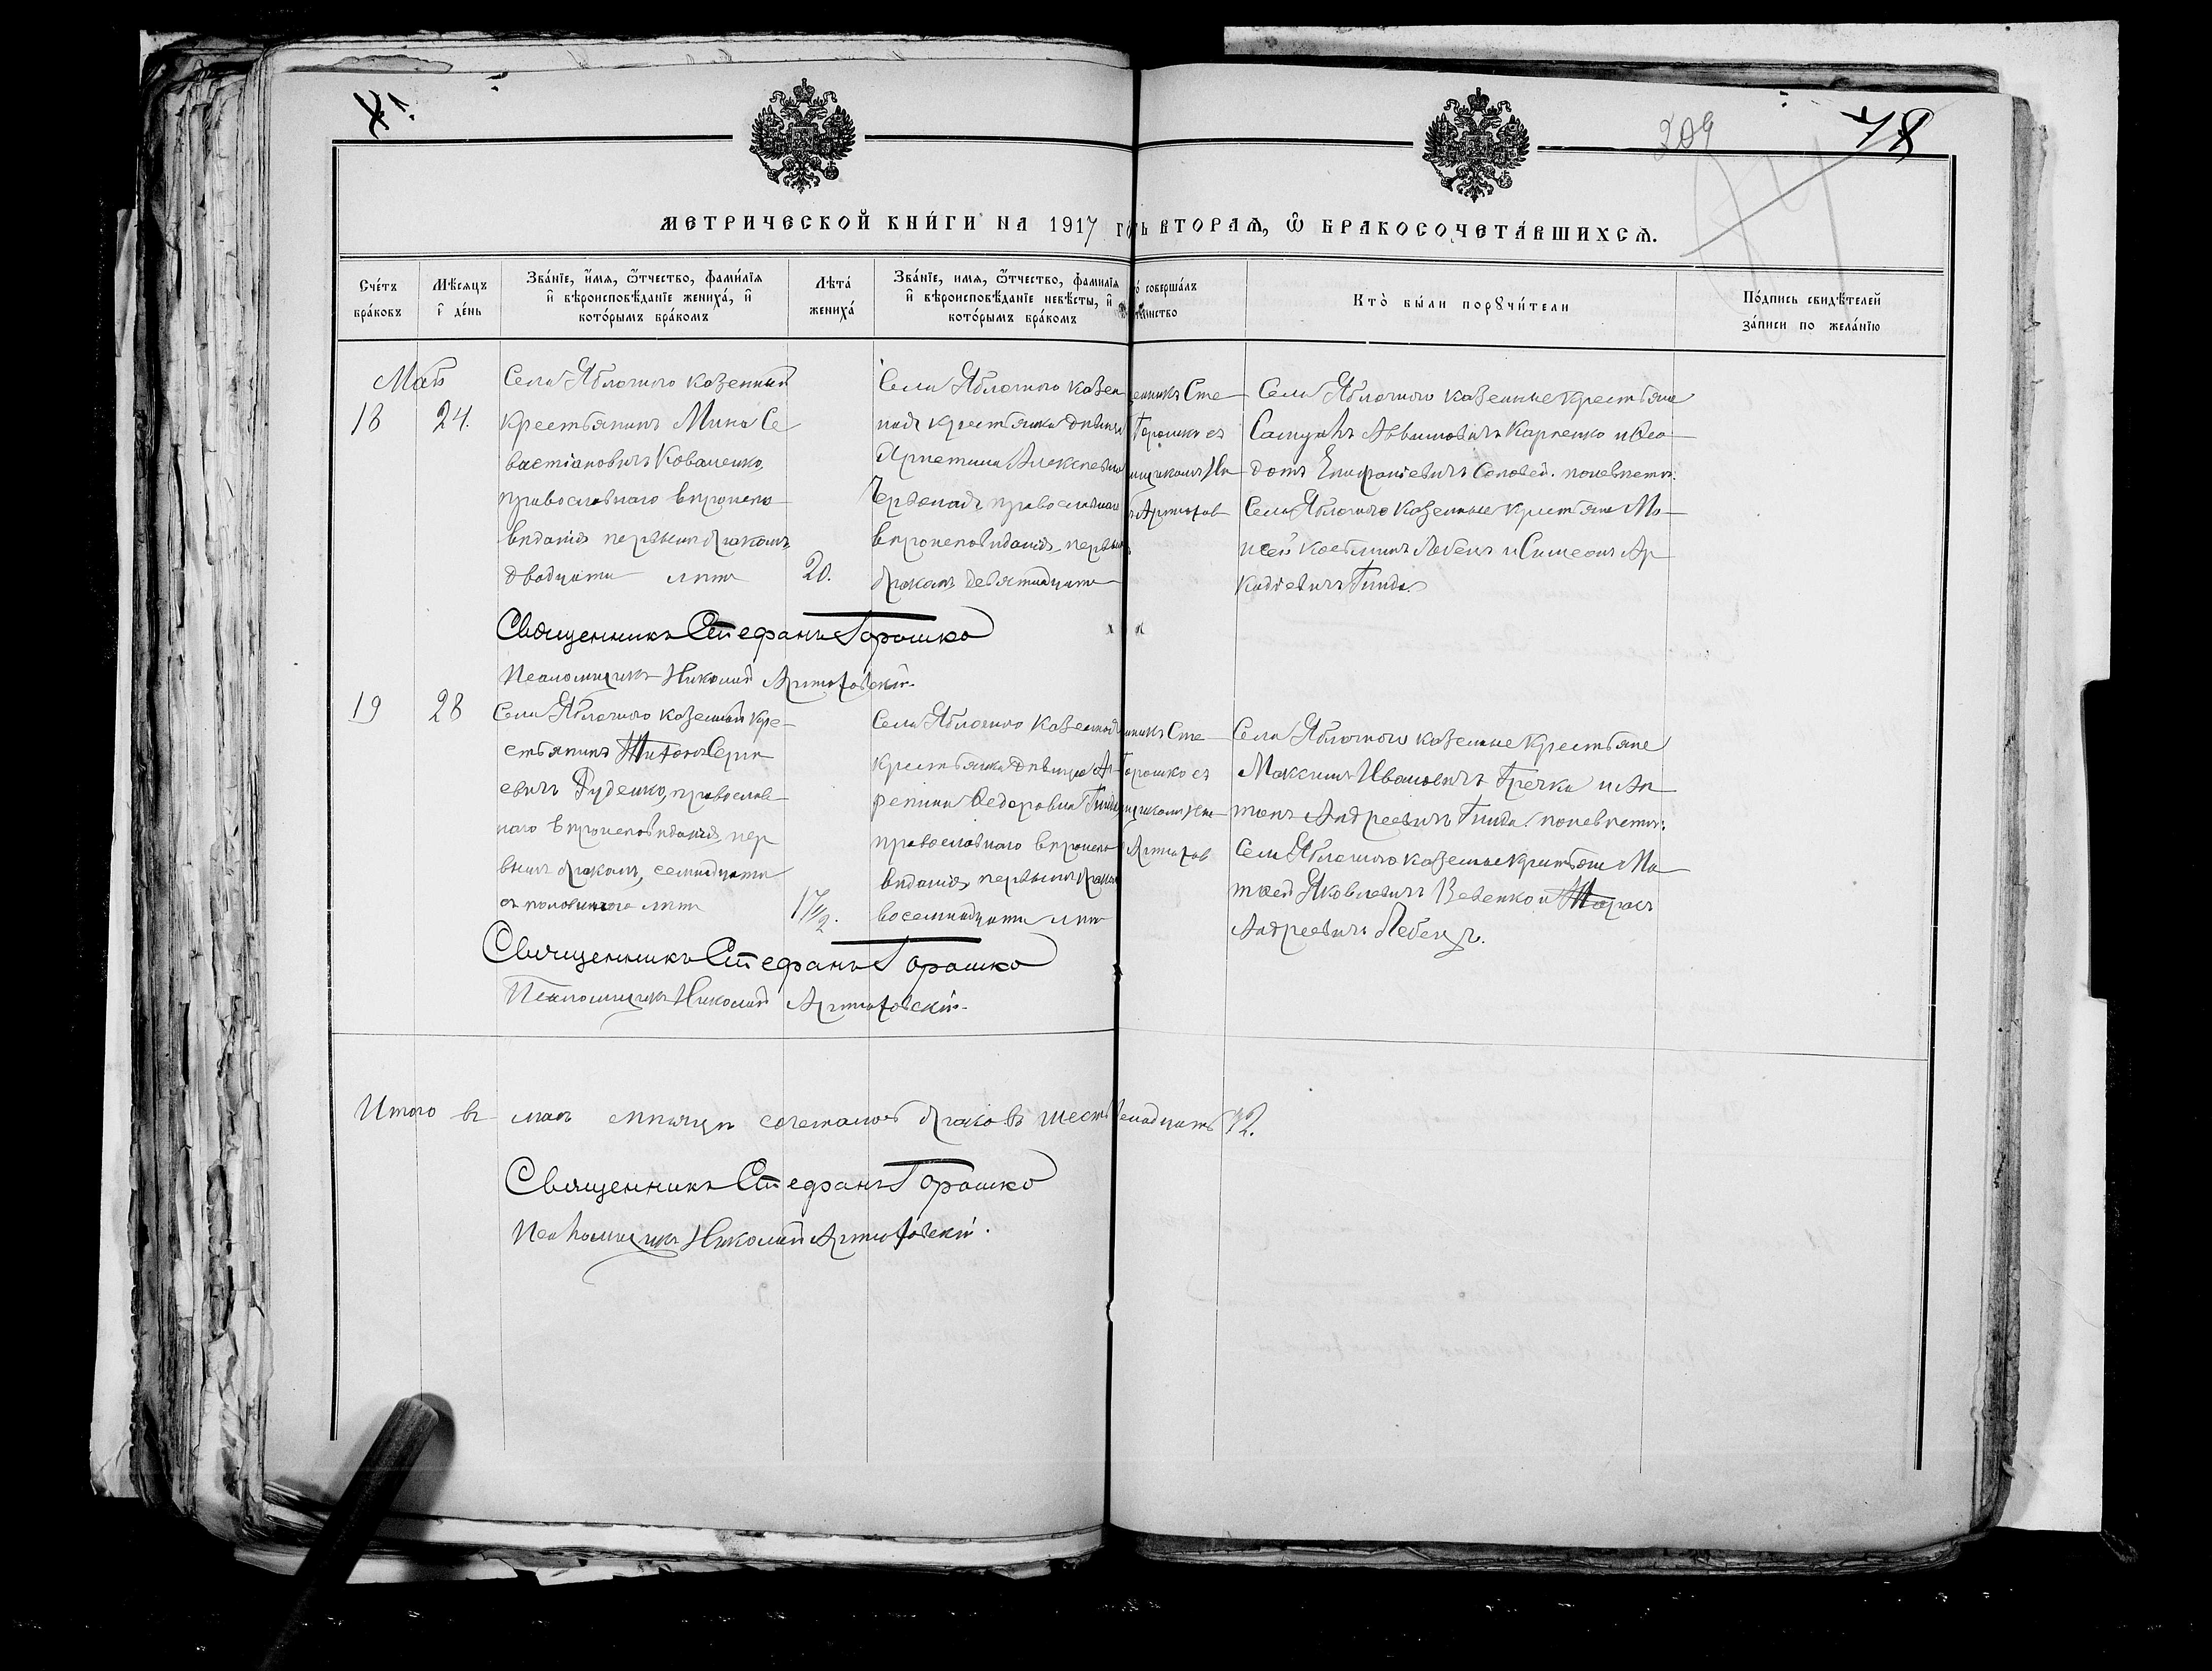 209
МЕТРИЧЕСКОЙ КНИ́ГИ НА 1917 ГО́ДЪ ВТОРАѦ, Ѿ БРАКОСОЧЕТА́ВШИХСѦ.
Сче́тъ бра́ковъ
Мѣ́сяцъ и҆ де́нь
Зва́нїе, и҆́мя, ѻ҆́тчество, фами́лїя и҆ вѣроисповѣ́данїе жениха́, и҆ кото́рымъ бра́комъ
Лѣта́ жениха́
Зва́нїе, имя, ѻ҆́тчество, фамилїя и҆ вѣроисповѣ́данїе невѣ́сты, и҆ кото́рымъ бра́комъ
совершáлъ
Кто̀ бы́ли порꙋчи́тели
По́дпись свидѣ́телей за́писи по жела́нїю
Май
18
24.
Села Яблочного казенный
крестьянинъ Мина Се
вастіановичъ Коваленко,
православнаго вѣроиспо-
вѣданія первымъ бракомъ,
двадцати лѣтъ
20.
Села Яблочного казен
ная крестьянка дѣвица
Алексѣевна
православнаго
вѣроисповѣданія, первымъ
бракомъ девятнадцати
енникъ Сте
Горошко съ
мщикомъ Ни
Артюхов
Села Яблочного казенные крестьяне
Карпенко и Ѳео-
дотъ Епифаніевичъ Соловей. по невѣстѣ:
Села Яблочного казенные крестьяне Мо-
исей Лебедь и Симеонъ Ар
кадіевичъ Гинда.
Священникъ Стефанъ Горошко
Псаломщикъ Николай Артюховскій.
19
28
Села Яблочного казенный кре-
стьянинъ Титъ Серги
евичъ Руденко, православ-
наго вѣроисповѣданія, пер
вымъ бракомъ, семнадцати
съ половиною лѣтъ
17 1/2.
Села Яблочного казенная
крестьянка дѣвица Аг-
репина Ѳедоровна Гинда
православнаго вѣроиспо
вѣданія, первымъ бракомъ
восемнадцати лѣтъ
нникъ Сте
Горошко съ
мщикомъ Ни
Артюхов
Села Яблочного казенные крестьяне
Максимъ Ивановичъ Гречка и Ан
тонъ Андреевичъ Гинда. по невѣстѣ:
Села Яблочного казенные крестьяне Ма-
тѳей Яковлевичъ Тарасъ
Андреевичъ Лебедь.
Священникъ Стефанъ Горошко
Псаломщикъ Николай Артюховскій.
Итого въ маѣ мѣсяцѣ сочеталось браковъ надцать 12.
Священникъ Стефанъ Горошко
Псаломщикъ Николай Артюховскій.